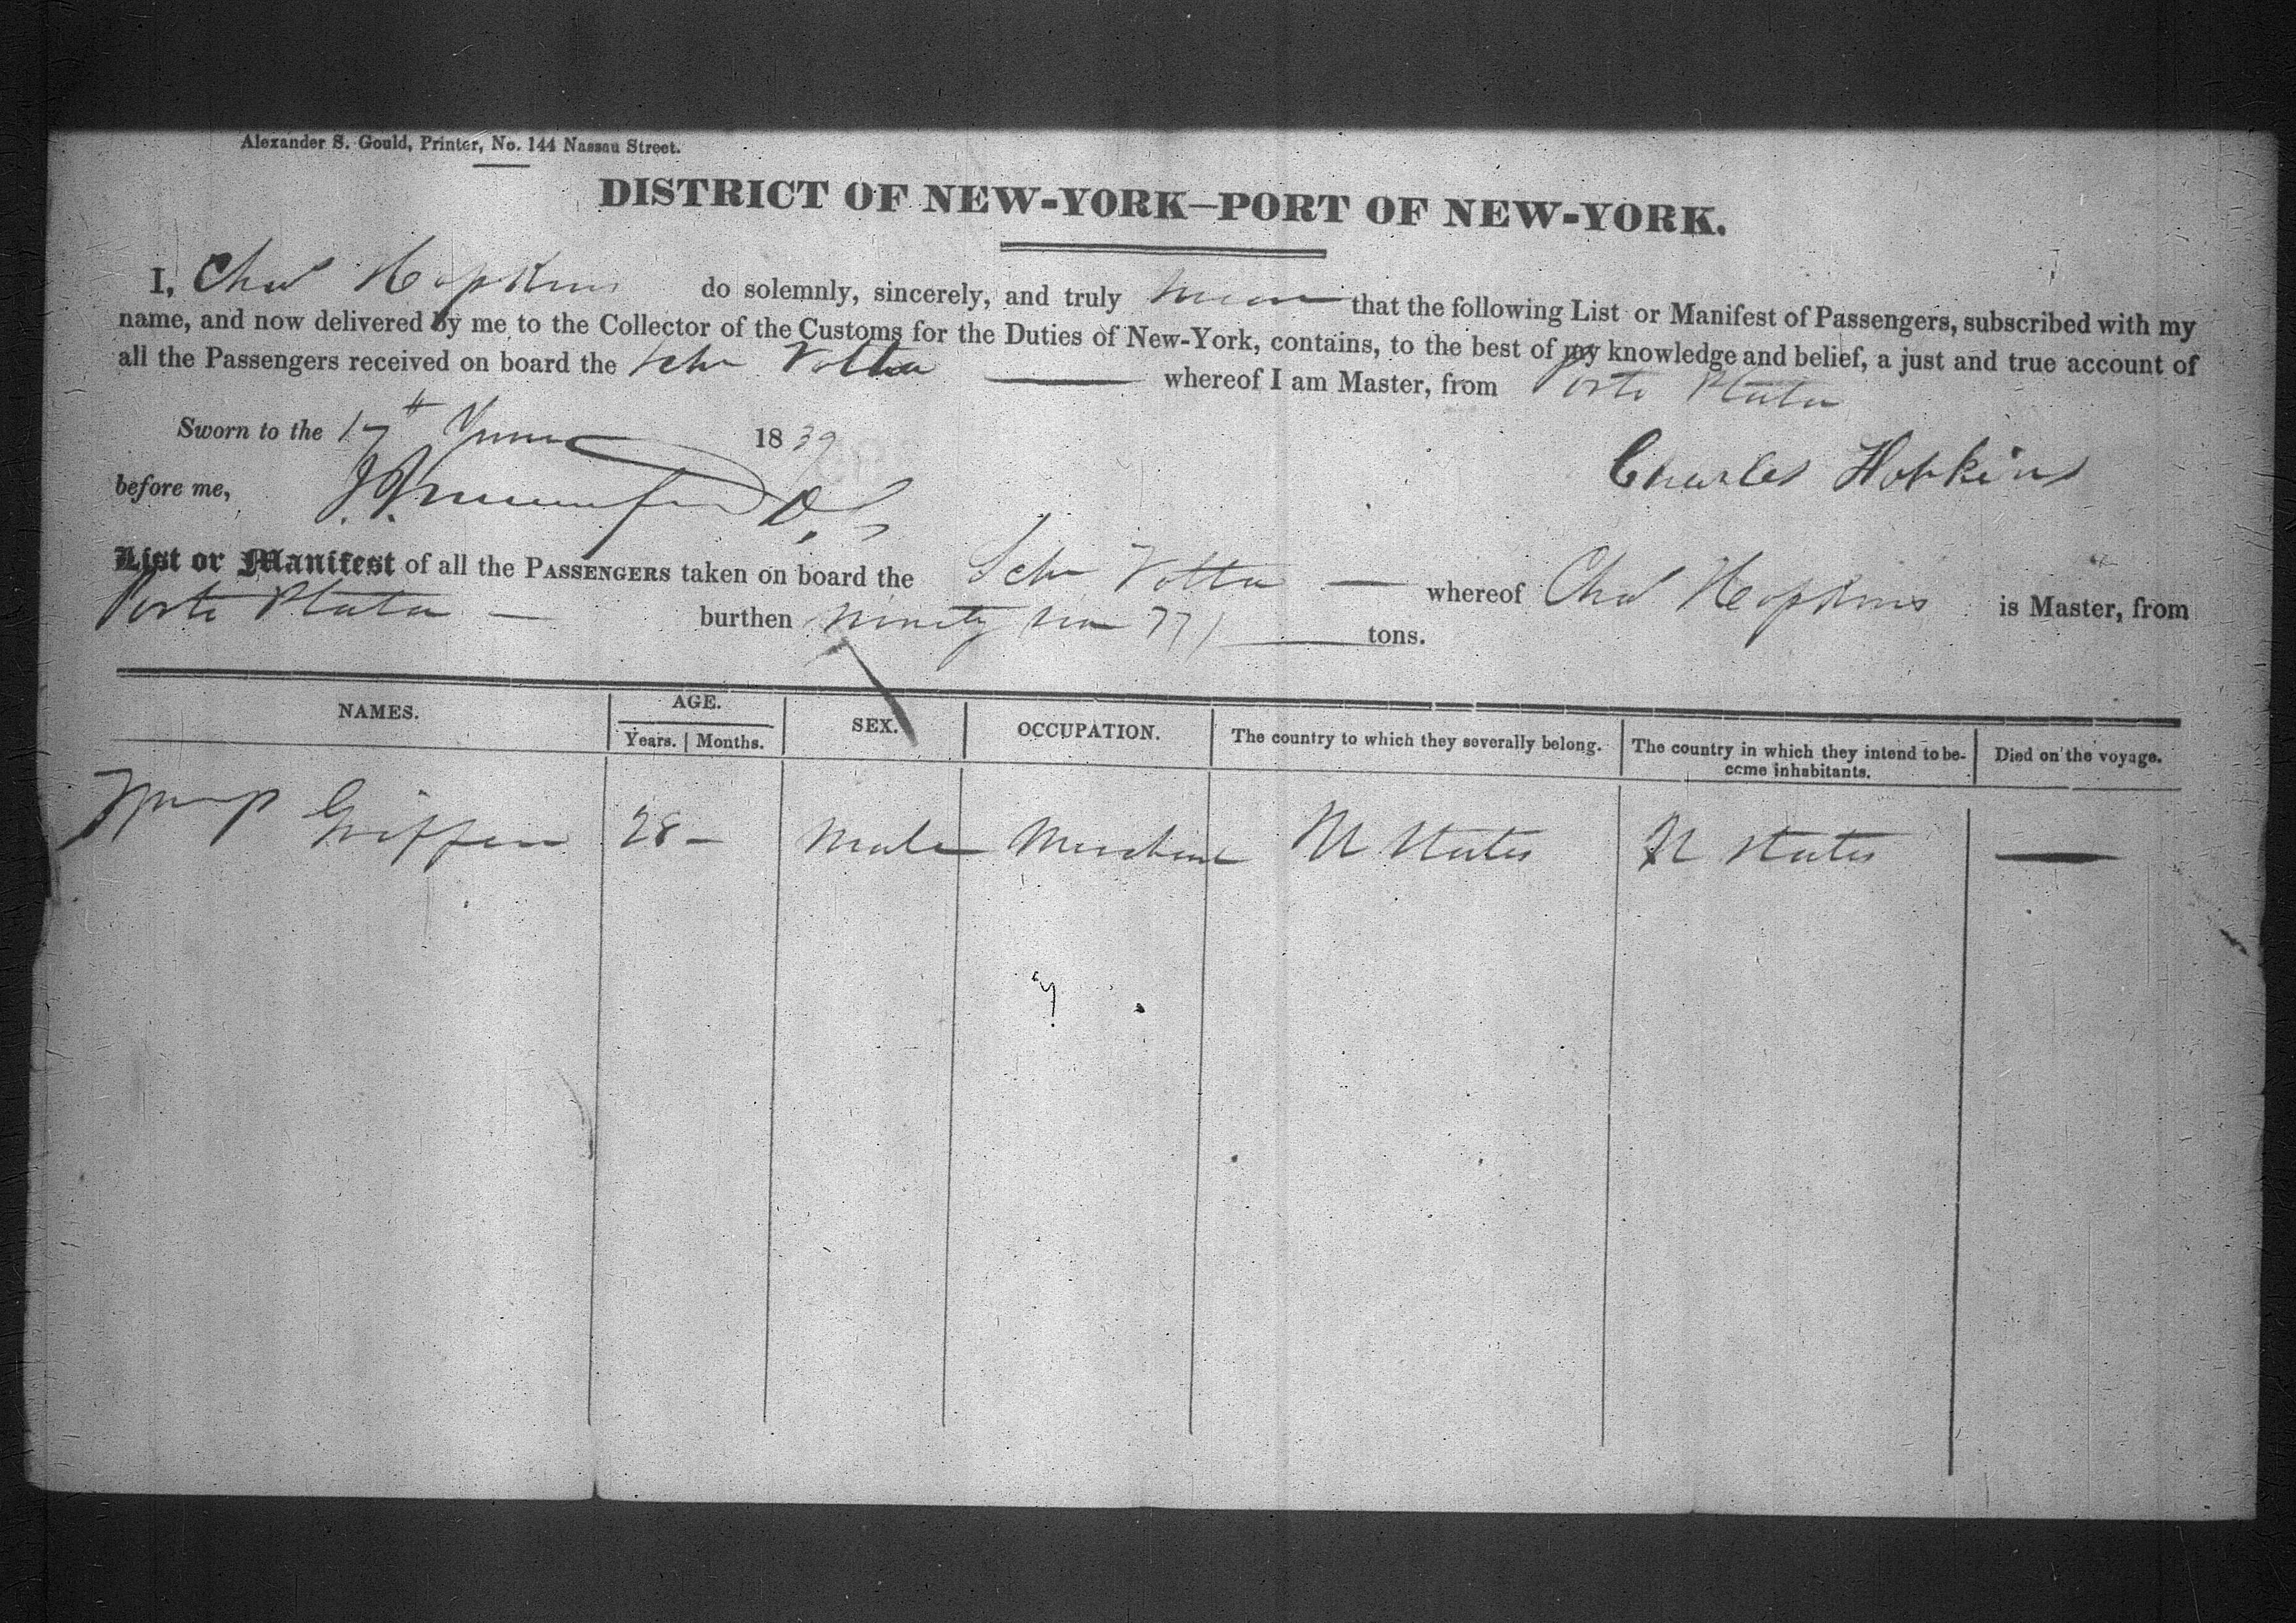 Alexander S. Gould, Printer, No. 144 Nassau Street.
DISTRICT OF NEW-YORK—PORT OF NEW-YORK.
I, Chas Hopkins do solemnly, sincerely, and truly swear that the following List or Manifest of Passengers, subscribed with my
name, and now delivered by me to the Collector of the Customs for the Duties of New-York, contains, to the best of my knowledge and belief, a just and true account of
all the Passengers received on board the Schr Volta whereof I am Master, from Porto Plata
Sworn to the 17th June 1839
Charles Hopkins
before me,
List or Manifest of all the PASSENGERS taken on board the Schr Volta — whereof Chas Hopkins is Master, from
Porto Plata — burthen ninety tons.
NAMES. AGE. SEX. OCCUPATION. The country to which they severally belong. The country in which they intend to be-
come inhabitants. Died on the voyage.
Years. Months.
Griffin 28 – Male Merchant U States U States —